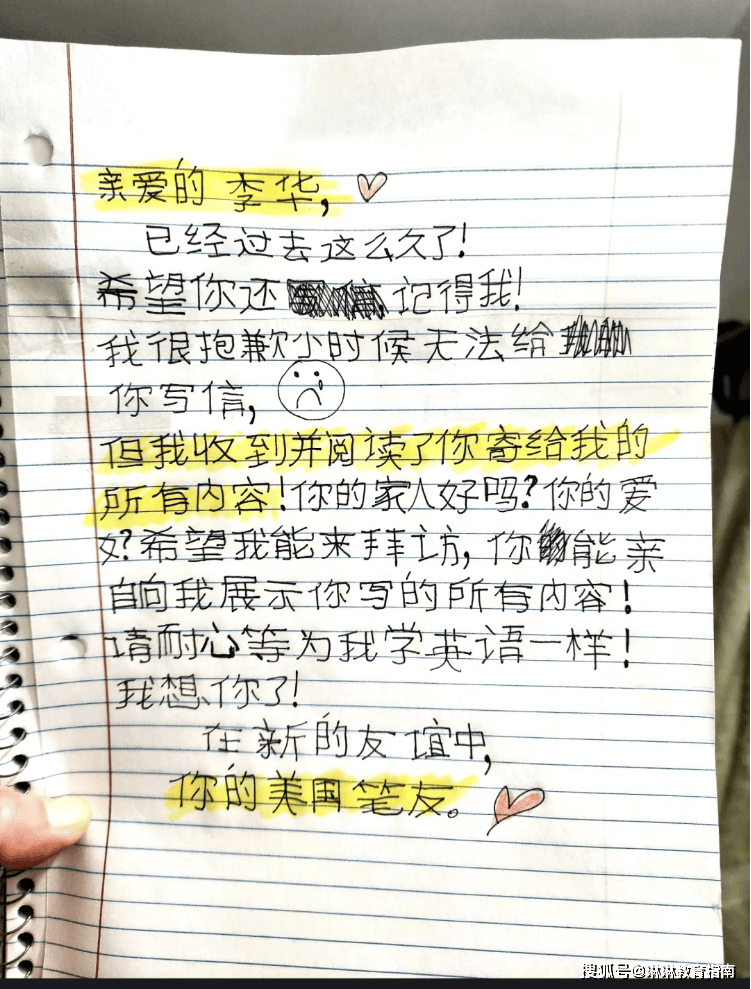 亲爱的 李华,
已经过去这么久了!
希望你还 记得我!
我很抱歉小时候无法给
你写信,
但我收到并阅读了你寄给我的
所有内容!你的家人好吗?你的爱
好?希望我能来拜访,你能亲
自向我展示你写的所有内容!
请耐心等为我学英语一样!
我想你了!
在新的友谊中,
你的美国笔友。
搜狐号@琳琳教育指南